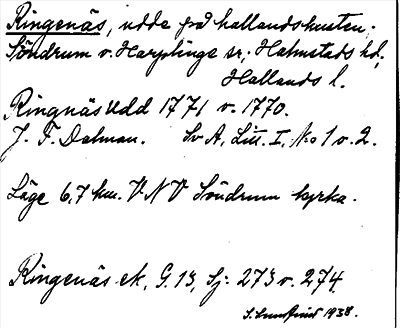 Ringenäs, udde på hallandskusten,
Söndrum o. Harplinge sr, Halmstads hd,
Hallands l.
Ringnäs Udd 1771 o. 1770.
J. F. Dalman. Sv A, Litt. I, No 1 o. 2.
Läge 6,7 km. V N V Söndrum kyrka.
Ringenäs ek, G. 13, Sj: 273 o. 274
1938.